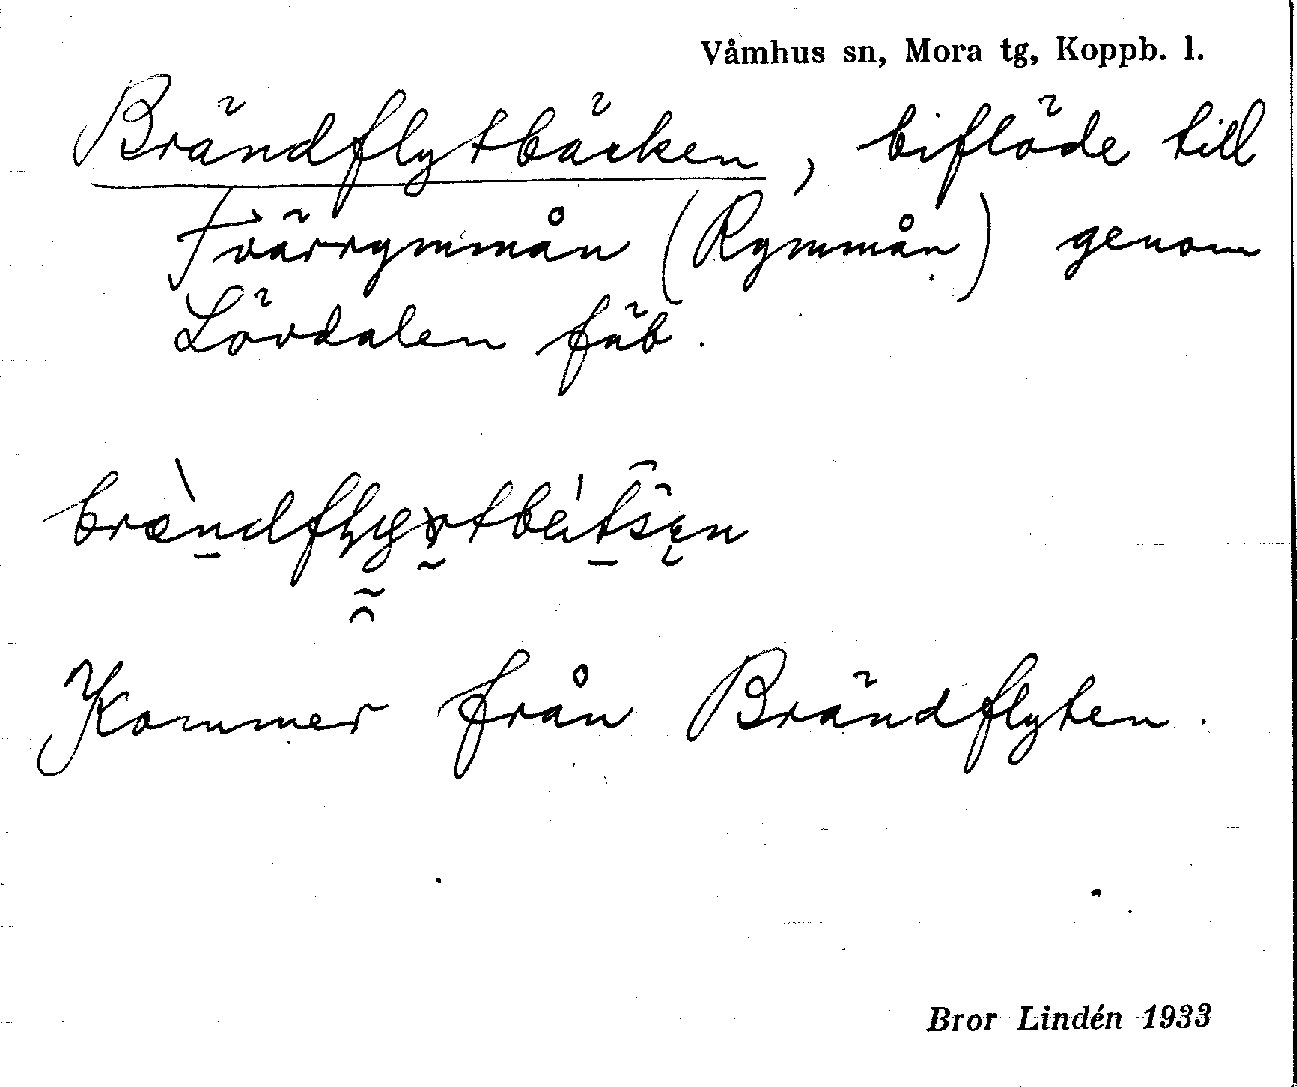 Våmhus sn, Mora tg, Koppb. l.
Brändflytbäcken, biflöde till
Tvärrymmån (Rymmån) genom
Lövdalen fäb.
Kommer från Brändflyten.
Bror Lindén 1933